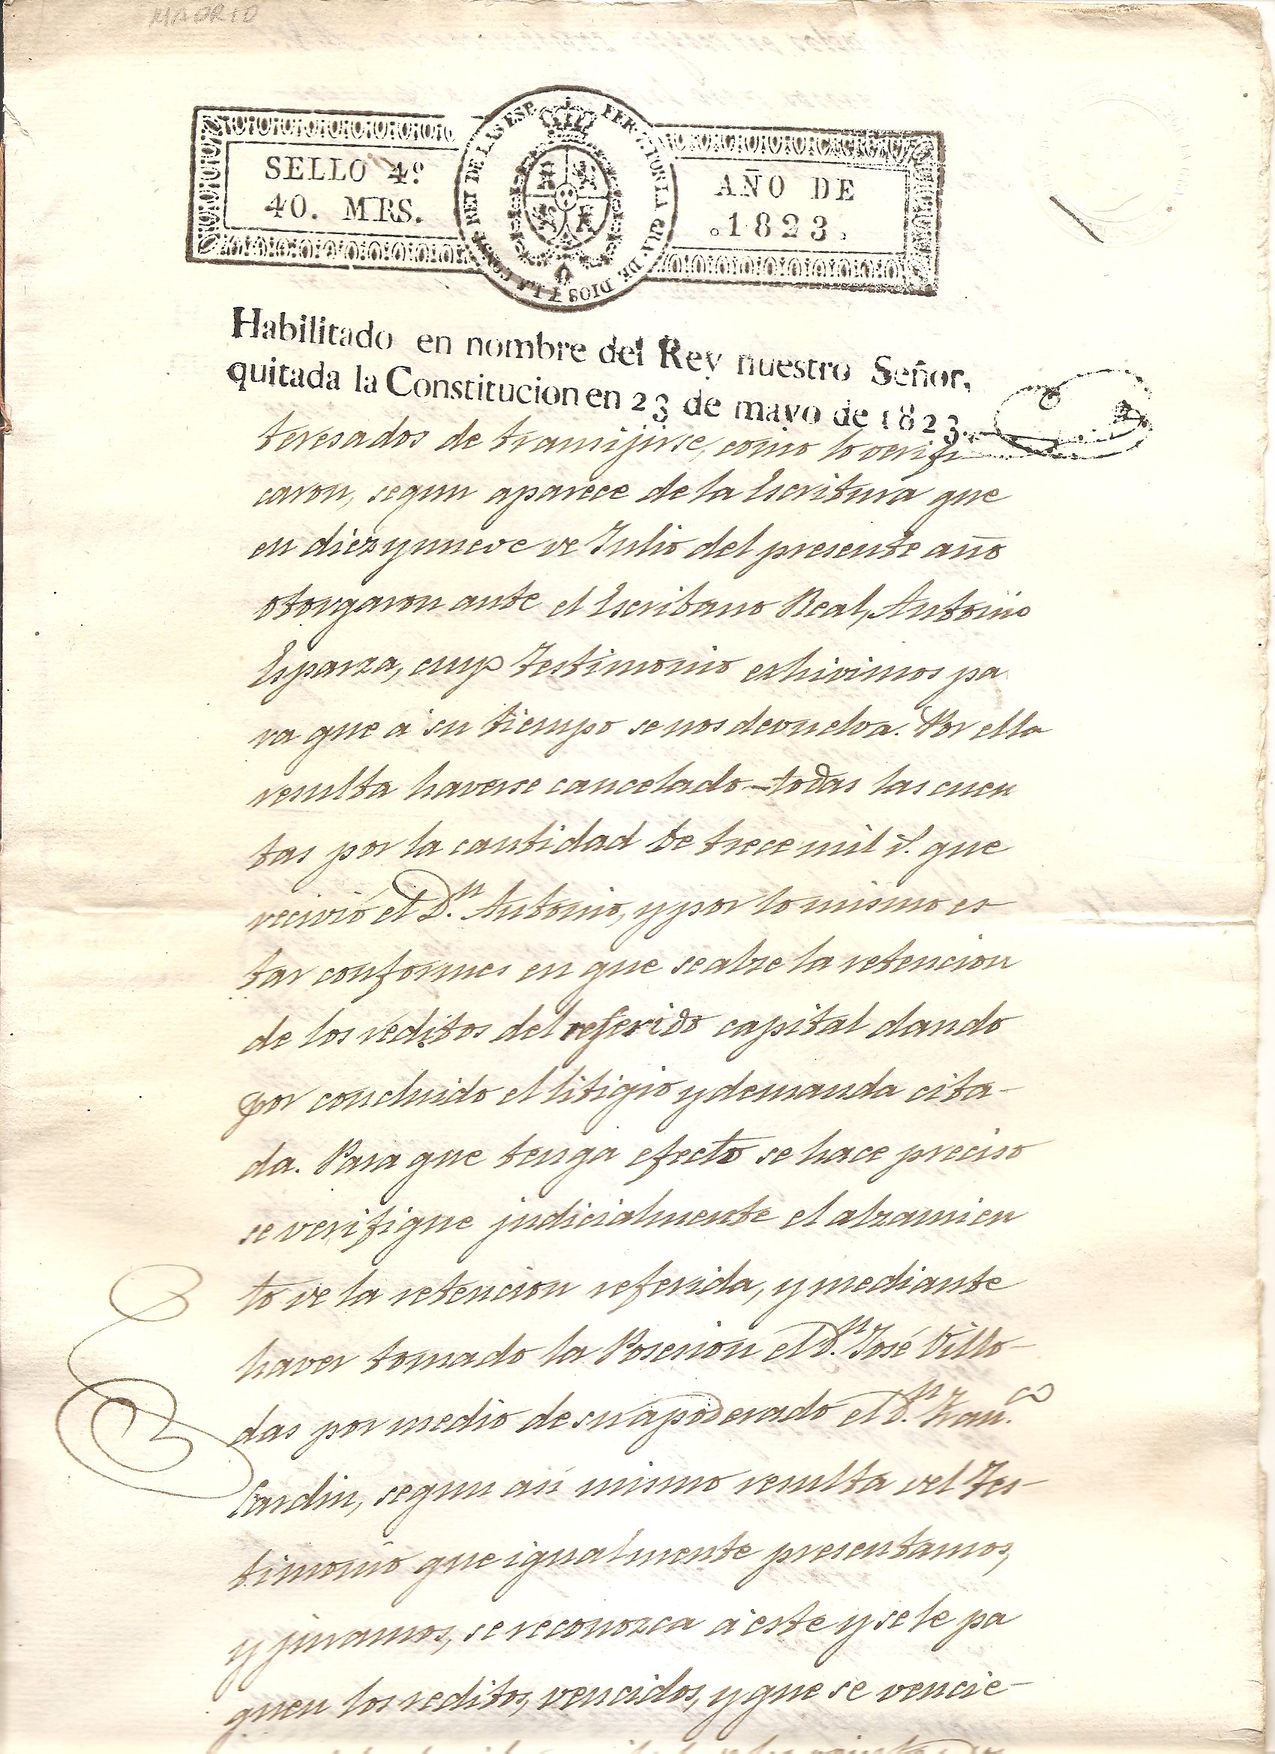 MADRID
SELLO 4º
40. MRS.
FER. 7. POR LA GRA. DE DIOS Y LA CONST. REY DE LAS ESP.
AÑO DE
1823.
Habilitado en nombre del Rey nuestro Señor,
quitada la Constitucion en 23 de mayo de 1823.
teresados de transijirse, como lo verifi
caron, segun aparece de la Escritura que
en diez y nueve de Julio del presente año
otorgaron ante el Escribano Real, Antonio
Esparza, cuyo testimonio exhivimos pa
ra que á su tiempo se nos devuelva. Por ello
resulta haverse cancelado todas las cuen
tas por la cantidad de trece mil rˢ. que
recivió el D.ⁿ Antonio, y por lo mismo es
tar conformes en que se alze la retencion
de los reditos del referido capital dando
por concluido el litigio y demanda cita-
da. Para que tenga efecto se hace preciso
se verifique judicialmente el alzamien
to de la retencion referida, y mediante
haver tomado la Posesion el D.ⁿ José Villo-
das por medio de su apoderado el D.ⁿ Fran.ᶜᵒ
Gardin, segun asi mismo resulta del Tes-
timonio que igualmente presentamos,
y juramos, se reconozca á este y se le pa
guen los reditos, vencidos, y que se vencie-